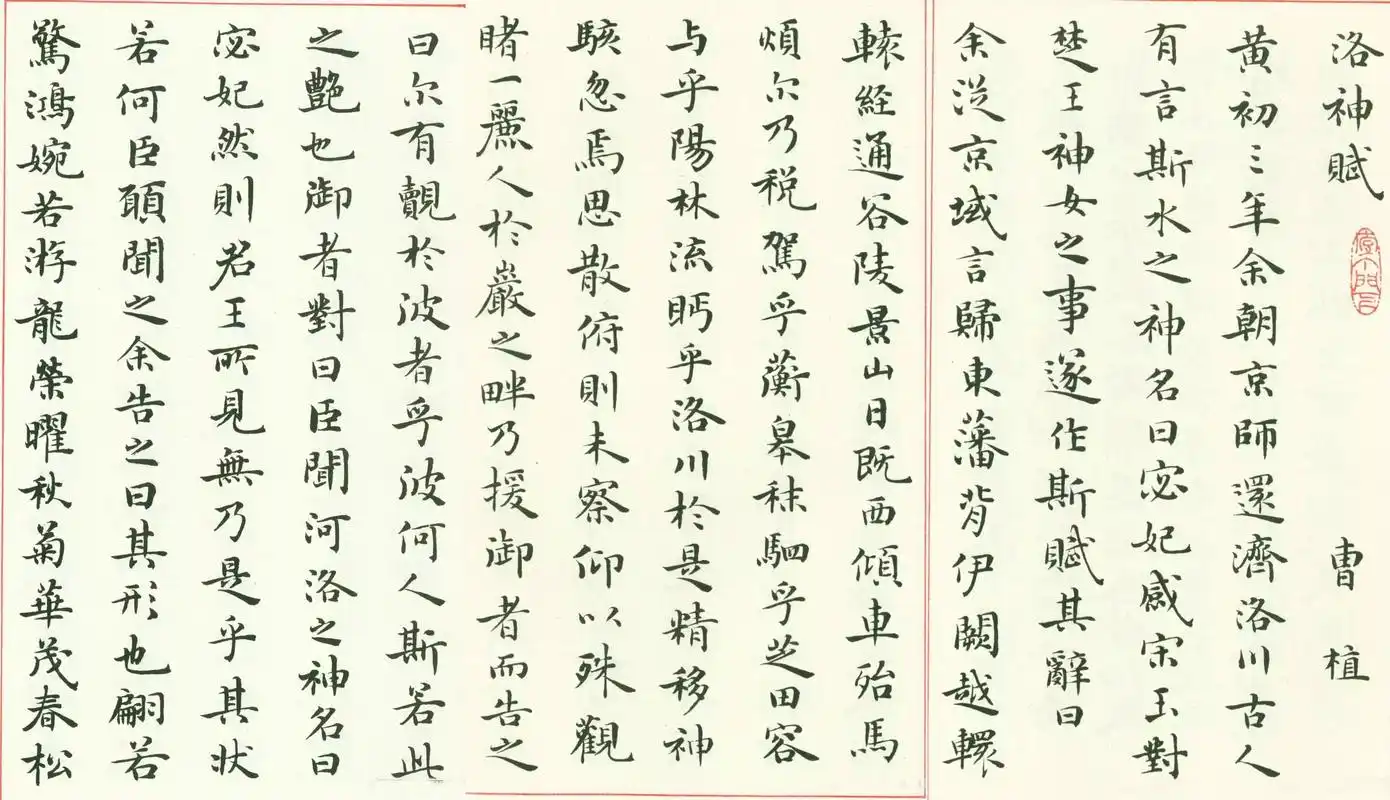 洛神賦 曹植
黄初三年余朝京師還濟洛川古人
有言斯水之神名曰宓妃感宋玉對
楚王神女之事遂作斯賦其辭曰
余從京域言歸東藩背伊闕越轘
轅経通谷陵景山日既西傾車殆馬
煩尔乃税駕乎蘅皋秣駟乎芝田容
与乎陽林流眄乎洛川於是精移神
駭忽焉思散俯則未察仰以殊觀
睹一麗人於巖之畔乃援御者而告之
曰尔有覿於彼者乎彼何人斯若此
之艷也御者對曰臣聞河洛之神名曰
宓妃然則君王所見無乃是乎其状
若何臣願聞之余告之曰其形也翩若
驚鴻婉若游龍榮曜秋菊華茂春松